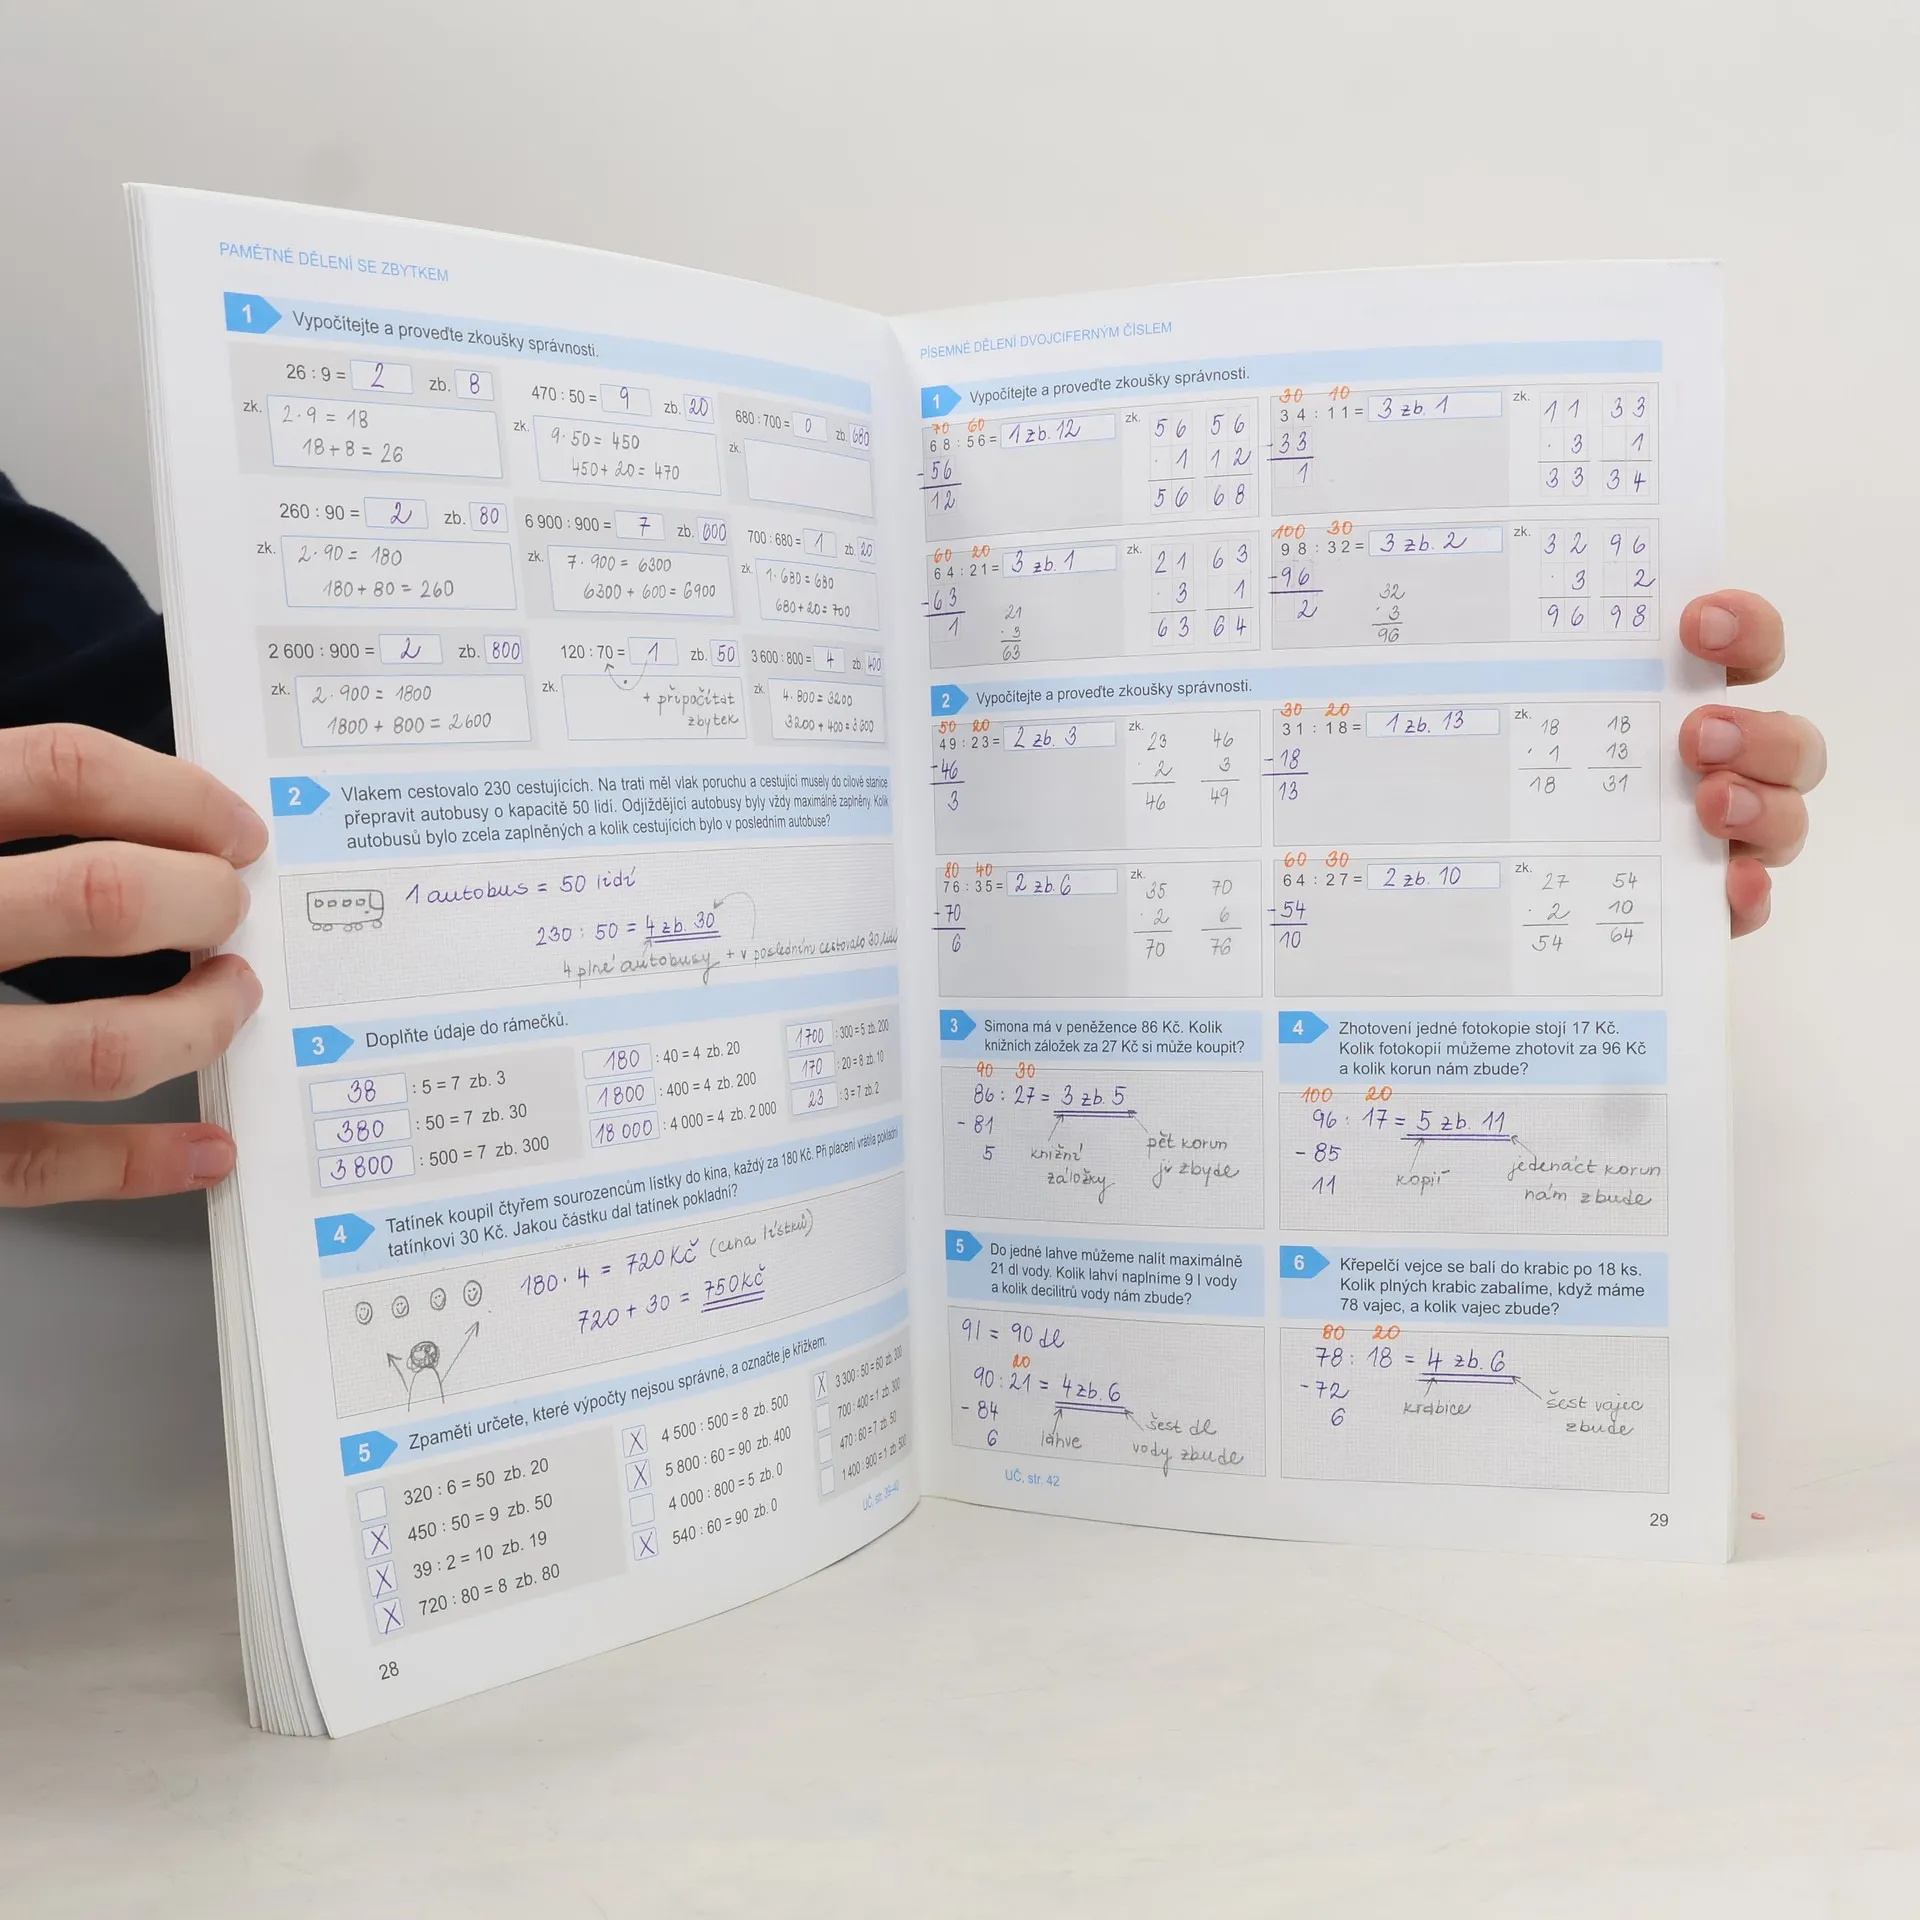 PAMĚTNÉ DĚLENÍ SE ZBYTKEM
1 Vypočítejte a proveďte zkoušky správnosti.
26 : 9 = 2 zb. 8
zk. 2·9 = 18
18 + 8 = 26
470 : 50 = 9 zb. 20
zk. 9·50 = 450
450 + 20 = 470
680 : 700 = 0 zb. 680
zk.
260 : 90 = 2 zb. 80
zk. 2·90 = 180
180 + 80 = 260
6 900 : 900 = 7 zb. 600
zk. 7·900 = 6300
6300 + 600 = 6900
700 : 680 = 1 zb. 20
zk. 1·680 = 680
680 + 20 = 700
2 600 : 900 = 2 zb. 800
zk. 2·900 = 1800
1800 + 800 = 2600
120 : 70 = 1 zb. 50
zk. + připočítat
zbytek
3 600 : 800 = 4 zb. 400
zk. 4·800 = 3200
3200 + 400 = 3600
2 Vlakem cestovalo 230 cestujících. Na trati měl vlak poruchu a cestující musely do cílové stanice
přepravit autobusy o kapacitě 50 lidí. Odjíždějící autobusy byly vždy maximálně zaplněny. Kolik
autobusů bylo zcela zaplněných a kolik cestujících bylo v posledním autobuse?
1 autobus = 50 lidí
230 : 50 = 4 zb. 30
4 plné autobusy + v posledním cestovalo 30 lidí
3 Doplňte údaje do rámečků.
38 : 5 = 7 zb. 3
380 : 50 = 7 zb. 30
3800 : 500 = 7 zb. 300
180 : 40 = 4 zb. 20
1800 : 400 = 4 zb. 200
18 000 : 4 000 = 4 zb. 2 000
1700 : 300 = 5 zb. 200
170 : 20 = 8 zb. 10
23 : 3 = 7 zb. 2
4 Tatínek koupil čtyřem sourozencům lístky do kina, každý za 180 Kč. Při placení vrátila pokladní
tatínkovi 30 Kč. Jakou částku dal tatínek pokladní?
180·4 = 720 Kč (cena lístků)
720 + 30 = 750 Kč
5 Zpaměti určete, které výpočty nejsou správné, a označte je křížkem.
320 : 6 = 50 zb. 20
X 450 : 50 = 9 zb. 50
X 39 : 2 = 10 zb. 19
X 720 : 80 = 8 zb. 80
X 4 500 : 500 = 8 zb. 500
X 5 800 : 60 = 90 zb. 400
4 000 : 800 = 5 zb. 0
X 540 : 60 = 90 zb. 0
X 3 300 : 50 = 60 zb. 300
700 : 400 = 1 zb. 300
470 : 60 = 7 zb. 50
1 400 : 900 = 1 zb. 500
UČ. str. 39-40
28
PÍSEMNÉ DĚLENÍ DVOJCIFERNÝM ČÍSLEM
1 Vypočítejte a proveďte zkoušky správnosti.
70 60
68 : 56 = 1 zb. 12
-56
12
zk. 56 56
·1 12
56 68
30 10
34 : 11 = 3 zb. 1
-33
1
zk. 11 33
·3 1
33 34
60 20
64 : 21 = 3 zb. 1
-63
1
21
·3
63
zk. 21 63
·3 1
63 64
100 30
98 : 32 = 3 zb. 2
-96
2
32
·3
96
zk. 32 96
·3 2
96 98
2 Vypočítejte a proveďte zkoušky správnosti.
50 20
49 : 23 = 2 zb. 3
-46
3
zk. 23 46
·2 3
46 49
30 20
31 : 18 = 1 zb. 13
-18
13
zk. 18 18
·1 13
18 31
80 40
76 : 35 = 2 zb. 6
-70
6
zk. 35 70
·2 6
70 76
60 30
64 : 27 = 2 zb. 10
-54
10
zk. 27 54
·2 10
54 64
3 Simona má v peněžence 86 Kč. Kolik
knižních záložek za 27 Kč si může koupit?
90 30
86 : 27 = 3 zb. 5
-81
5
knižní
záložky
pět korun
jí zbyde
4 Zhotovení jedné fotokopie stojí 17 Kč.
Kolik fotokopií můžeme zhotovit za 96 Kč
a kolik korun nám zbude?
100 20
96 : 17 = 5 zb. 11
-85
11
kopií
jedenáct korun
nám zbude
5 Do jedné lahve můžeme nalít maximálně
21 dl vody. Kolik lahví naplníme 9 l vody
a kolik decilitrů vody nám zbude?
9l = 90 dl
20
90 : 21 = 4 zb. 6
-84
6
láhve
šest dl
vody zbude
6 Křepelčí vejce se balí do krabic po 18 ks.
Kolik plných krabic zabalíme, když máme
78 vajec, a kolik vajec zbude?
80 20
78 : 18 = 4 zb. 6
-72
6
krabice
šest vajec
zbude
UČ. str. 42
29